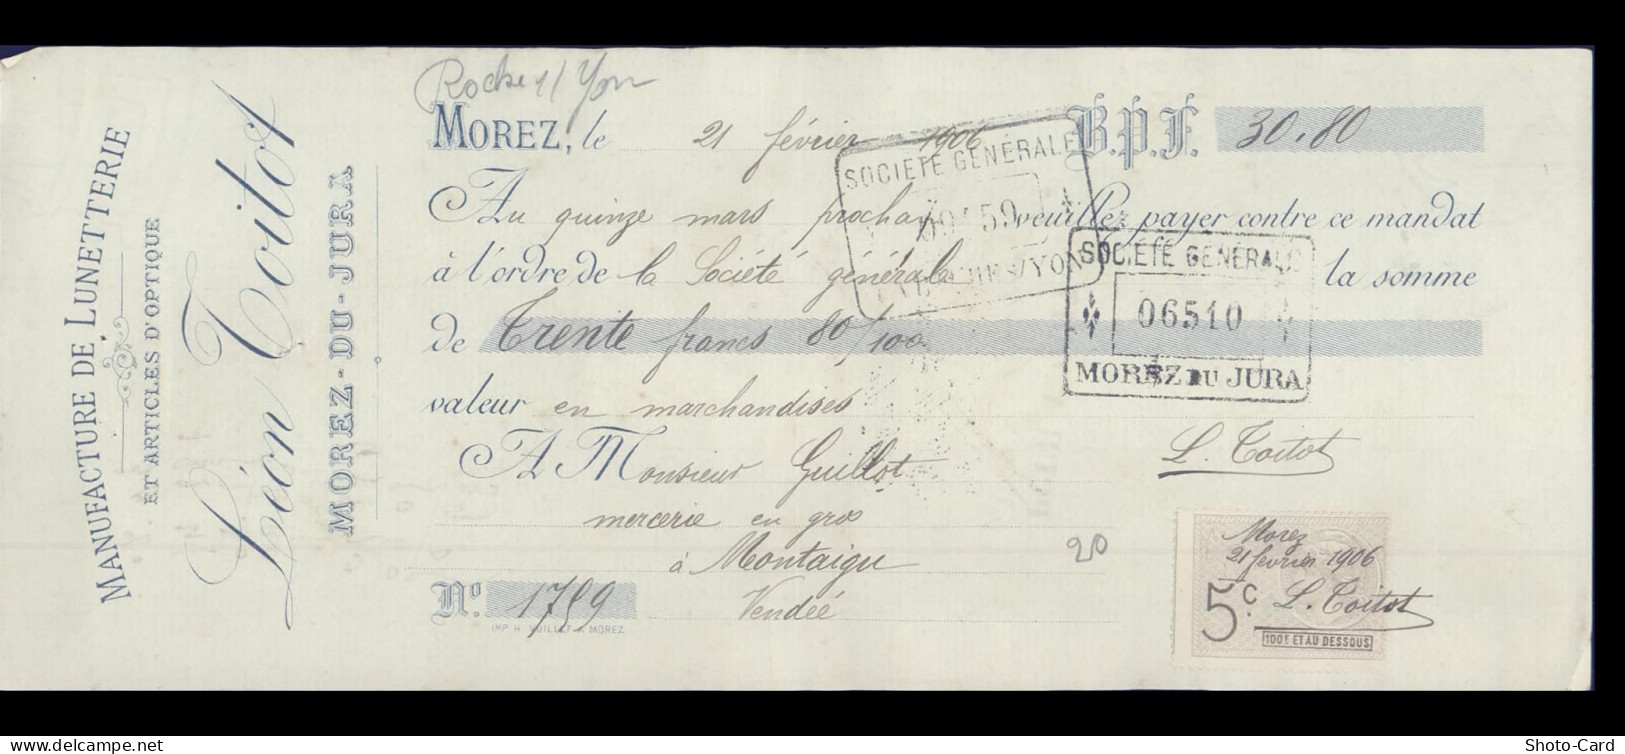 MANUFACTURE DE LUNETTERIE
ET ARTICLES D'OPTIQUE
Léon Toitot
MOREZ-DU-JURA
Roche s/ Yon
MOREZ, le 21 février 1906 B.P.F. 30.80
Au quinze mars prochain veuillez payer contre ce mandat
à l'ordre de la Société générale la somme
de Trente francs 80/100
valeur en marchandises
A Monsieur Guillot
mercerie en gros
à Montaigu
Vendée
No. 1759
IMP. H. VUILLET A MOREZ
SOCIÉTÉ GÉNÉRALE
SOCIÉTÉ GÉNÉRALE
06510
MOREZ DU JURA
L. Toitot
20
Morez
21 février 1906
L. Toitot
5c.
100F ET AU DESSOUS
www.delcampe.net
Shoto-Card